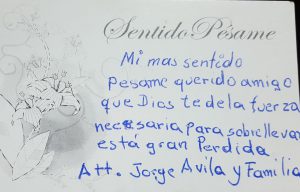 Sentido Pésame
Mi mas sentido
pesame querido amigo
que Dios te de la fuerza
necesaria para sobrellevar
está gran Perdida
Att. Jorge Avila y Familia